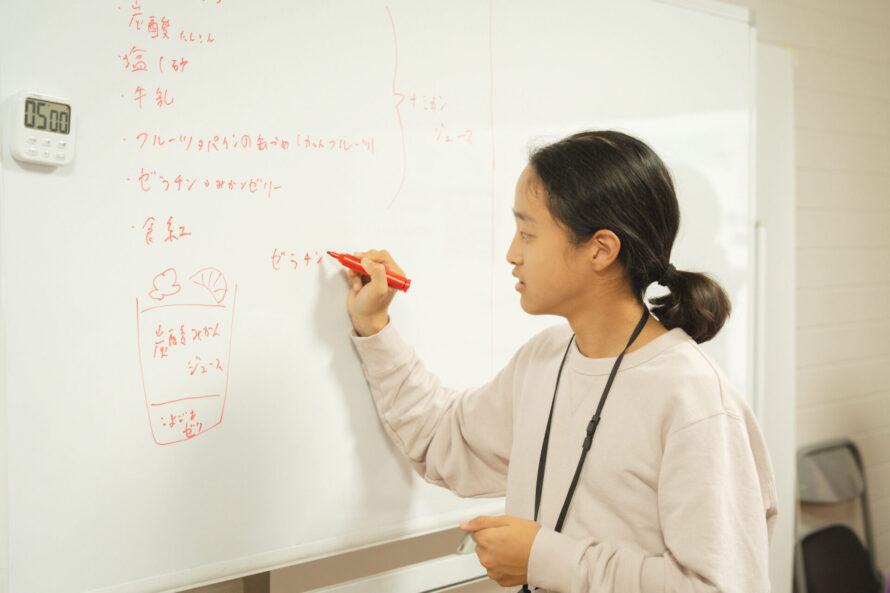 05:00
・炭酸 たんさん
・塩 砂
・牛乳
+ミカン
ジュース
・フルーツ パインの缶づめ(カットフルーツ)
・ゼラチン みかんゼリー
・食紅
ゼラチン
炭酸 みかん
ジュース
ゼリ